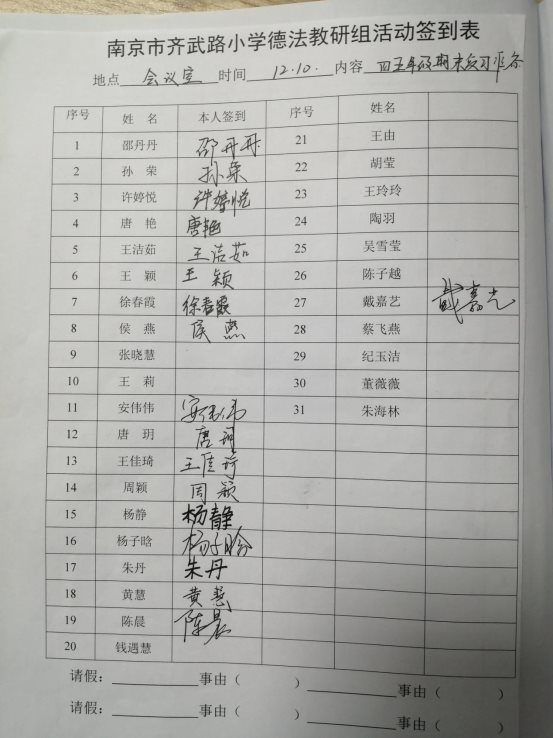 南京市齐武路小学德法教研组活动签到表
地点 会议室 时间 12.10. 内容 四五年级期末复习准备
序号 姓 名 本人签到 序号 姓名
1 邵丹丹 邵丹丹 21 王由
2 孙 荣 孙荣 22 胡莹
3 许婷悦 许婷悦 23 王玲玲
4 唐 艳 唐艳 24 陶羽
5 王洁茹 王洁茹 25 吴雪莹
6 王 颖 王颖 26 陈子越
7 徐春霞 徐春霞 27 戴嘉艺 戴嘉艺
8 侯 燕 侯燕 28 蔡飞燕
9 张晓慧 29 纪玉洁
10 王 莉 30 董薇薇
11 安伟伟 安伟伟 31 朱海林
12 唐 玥 唐玥
13 王佳琦 王佳琦
14 周颖 周颖
15 杨静 杨静
16 杨子晗 杨子晗
17 朱丹 朱丹
18 黄慧 黄慧
19 陈晨 陈晨
20 钱遇慧
请假： 事由（ ） 事由（ ）
请假： 事由（ ） 事由（ ）